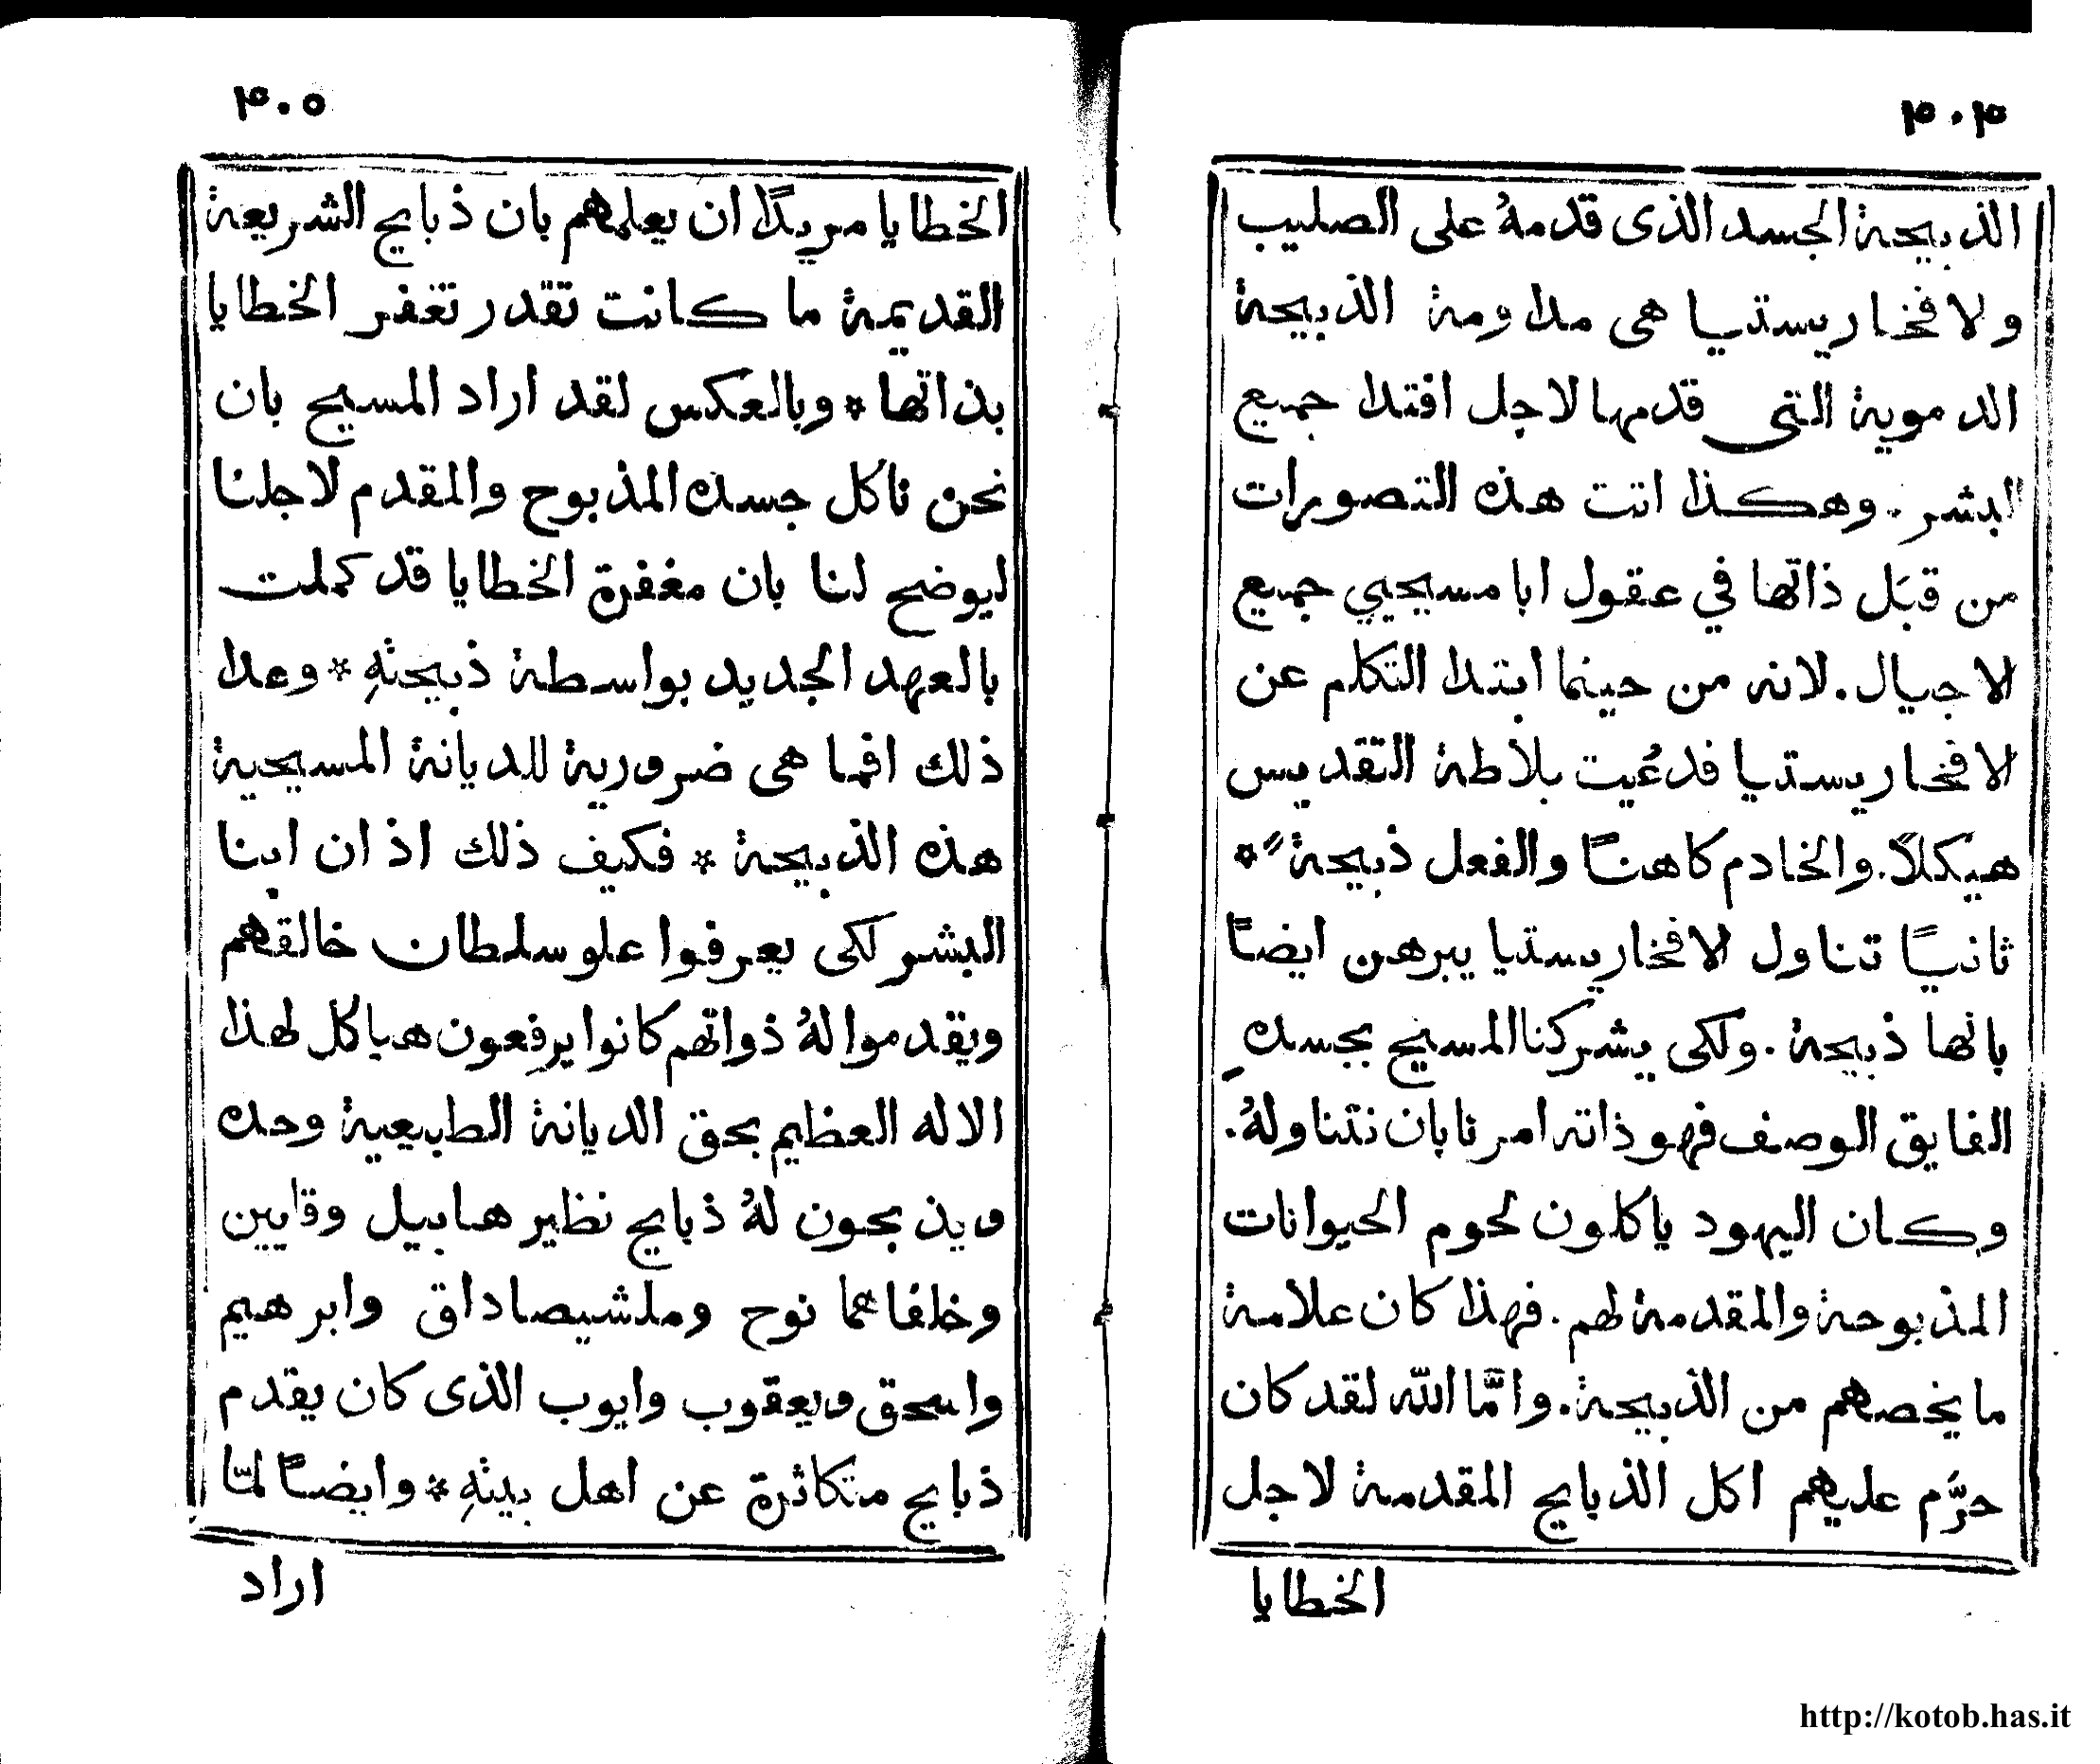 ٣٠٤
الذبيحة الجسد الذى قدمهُ على الصليب
ولافخاريستيا هى مداومة الذبيحة
الدموية التى قدمها لاجل افتدا جميع
البشر. وهكذا اتت هذه التصورات
من قبَل ذاتها في عقول ابا مسيحيي جميع
الاجيال. لانه من حينما ابتدا التكلم عن
الافخاريستيا فدعُيت بلاطة التقديس
هيكلاً. والخادم كاهنـًا والفعل ذبيحة ً*
ثانيـًا تناول الافخاريستيا يبرهن ايضـًا
بانها ذبيحة. ولكى يشركنا المسيح بجسدهِ
الفايق الوصف فهو ذاته امرنا بان نتناولهُ.
وكان اليهود ياكلون لحوم الحيوانات
المذبوحة والمقدمة لهم. فهذا كان علامة
ما يخصهم من الذبيحة. وامَّا الله لقد كان
حرَّم عليهم اكل الذبايح المقدمة لاجل
الخطايا
٣٠٥
الخطايا مريدًا ان يعلمهم بان ذبايح الشريعة
القديمة ما كانت تقدر تغفر الخطايا
بذاتها * وبالعكس لقد اراد المسيح بان
نحن ناكل جسده المذبوح والمقدم لاجلنا
ليوضح لنا بان مغفرة الخطايا قد كملت
بالعهد الجديد بواسطة ذبيحتهِ * وعدا
ذلك افما هى ضرورية للديانة المسيحية
هذه الذبيحة * فكيف ذلك اذ ان ابنا
البشر لكى يعرفوا علو سلطان خالقهم
ويقدموا لهُ ذواتهم كانوا يرفعون هياكل لهذا
الاله العظيم بحق الديانة الطبيعية وحده
ويذبحون لهُ ذبايح نظير هابيل وقايين
وخلفاءهما نوح وملشيصاداق وابرهيم
واسحق ويعقوب وايوب الذى كان يقدم
ذبايح متكاثرة عن اهل بيتهِ * وايضـًا لمّا
اراد
http://kotob.has.it